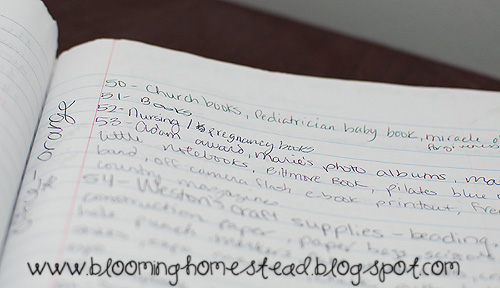 50 - Church books, Pediatrician baby book, miracle
51 - Books
52 - Nursing / pregnancy books
53 - Adam award, Marie's photo albums,
little notebooks, Biltmore Book, pilates blue
band, off camera flash, e-book printout,
country magazines
54 - Weston's craft supplies - beading,
construction paper, paper bags,
hole punch, markers
orange
www.bloominghomestead.blogspot.com